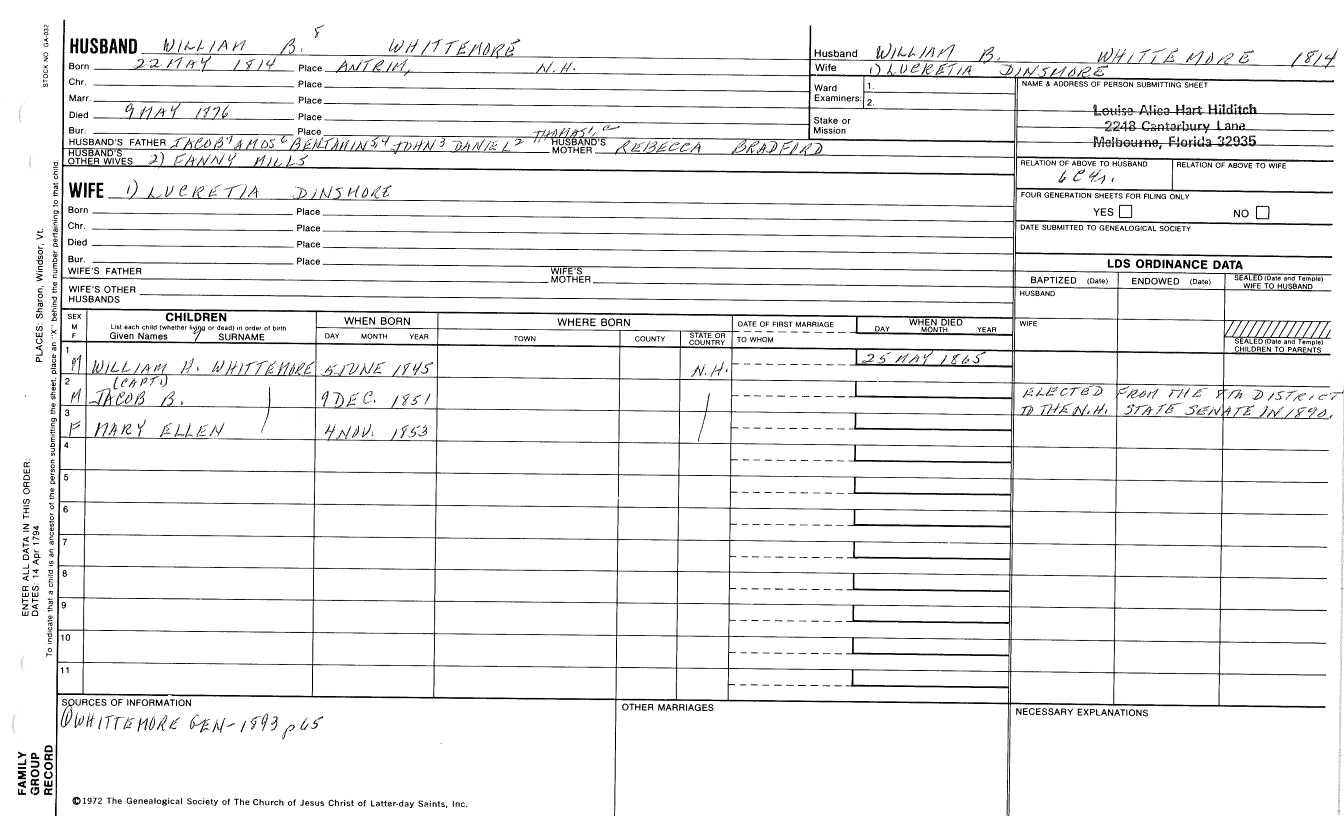 STOCK NO GA-032
HUSBAND WILLIAM B. 8 WHITTEMORE
Born 22 MAY 1814 Place ANTRIM, N.H.
Chr. Place
Marr. Place
Died 9 MAY 1876 Place
Bur. Place
HUSBAND'S FATHER JACOB7 AMOS6 BENJAMIN5,4 JOHN3 DANIEL2 THOMAS1, HUSBAND'S MOTHER REBECCA BRADFORD
HUSBAND'S OTHER WIVES 2) FANNY MILLS
WIFE 1) LUCRETIA DINSMORE
Born Place
Chr. Place
Died Place
Bur. Place
WIFE'S FATHER WIFE'S MOTHER
WIFE'S OTHER HUSBANDS
Husband WILLIAM B. WHITTEMORE 1814
Wife 1) LUCRETIA DINSMORE
Ward Examiners: 1. 2.
Stake or Mission
NAME & ADDRESS OF PERSON SUBMITTING SHEET
Louise Alice Hart Hilditch
2248 Canterbury Lane
Melbourne, Florida 32935
RELATION OF ABOVE TO HUSBAND RELATION OF ABOVE TO WIFE
FOUR GENERATION SHEETS FOR FILING ONLY
YES NO
DATE SUBMITTED TO GENEALOGICAL SOCIETY
LDS ORDINANCE DATA
BAPTIZED (Date) ENDOWED (Date) SEALED (Date and Temple) WIFE TO HUSBAND
HUSBAND
WIFE
SEALED (Date and Temple) CHILDREN TO PARENTS
SEX M F
CHILDREN
List each child (whether living or dead) in order of birth
Given Names SURNAME
WHEN BORN
DAY MONTH YEAR
WHERE BORN
TOWN COUNTY STATE OR COUNTRY
DATE OF FIRST MARRIAGE
TO WHOM
WHEN DIED
DAY MONTH YEAR
1 M WILLIAM H. WHITTEMORE 5 JUNE 1845 N.H. 25 MAY 1865
(CAPT.)
2 M JACOB B. 9 DEC. 1851 ELECTED FROM THE 8TH DISTRICT
TO THE N.H. STATE SENATE IN 1890.
3 F MARY ELLEN 4 NOV. 1853
4
5
6
7
8
9
10
11
SOURCES OF INFORMATION
① WHITTEMORE GEN-1893 p65
OTHER MARRIAGES
NECESSARY EXPLANATIONS
©1972 The Genealogical Society of The Church of Jesus Christ of Latter-day Saints, Inc.
PLACES: Sharon, Windsor, Vt.
To indicate that a child is an ancestor of the person submitting the sheet, place an "X" behind the number pertaining to that child.
ENTER ALL DATA IN THIS ORDER:
DATES: 14 Apr 1794
FAMILY
GROUP
RECORD